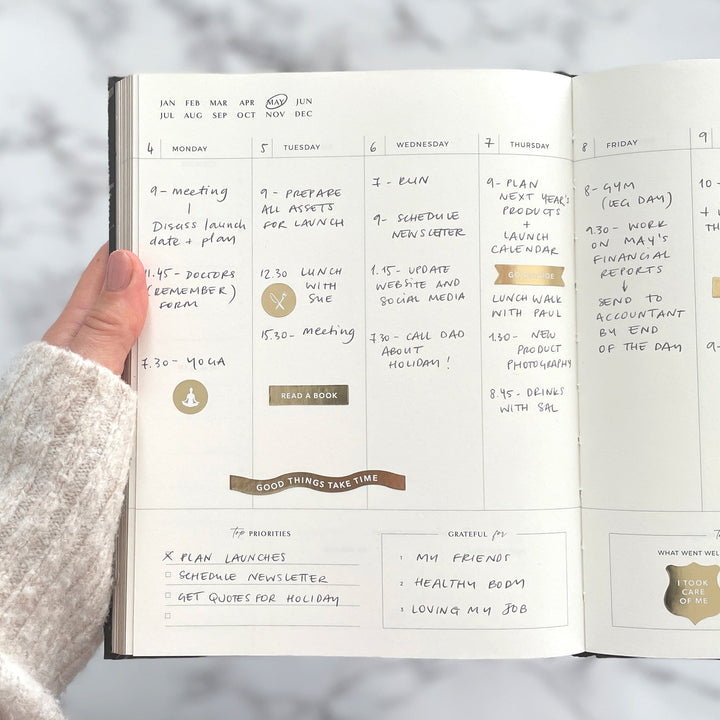 JAN FEB MAR APR MAY JUN
JUL AUG SEP OCT NOV DEC
4 MONDAY
9 - meeting
Discuss launch
date + plan
11.45 - DOCTORS
(REMEMBER)
FORM
7.30 - YOGA
5 TUESDAY
9 - PREPARE
ALL ASSETS
FOR LAUNCH
12.30 LUNCH
WITH
SUE
15.30 - meeting
READ A BOOK
6 WEDNESDAY
7 - RUN
9 - SCHEDULE
NEWSLETTER
1.15 - UPDATE
WEBSITE AND
SOCIAL MEDIA
7.30 - CALL DAD
ABOUT
HOLIDAY!
GOOD THINGS TAKE TIME
7 THURSDAY
9 - PLAN
NEXT YEAR'S
PRODUCTS
+
LAUNCH
CALENDAR
LUNCH WALK
WITH PAUL
1.30 - NEW
PRODUCT
PHOTOGRAPHY
8.45 - DRINKS
WITH SAL
8 FRIDAY
8 - GYM
(LEG DAY)
9.30 - WORK
ON MAY'S
FINANCIAL
REPORTS
↓
SEND TO
ACCOUNTANT
BY END
OF THE DAY
9
10 -
+
TH
9 -
Top PRIORITIES
X PLAN LAUNCHES
SCHEDULE NEWSLETTER
GET QUOTES FOR HOLIDAY
GRATEFUL for
1 MY FRIENDS
2 HEALTHY BODY
3 LOVING MY JOB
WHAT WENT WEL
I TOOK
CARE
OF ME